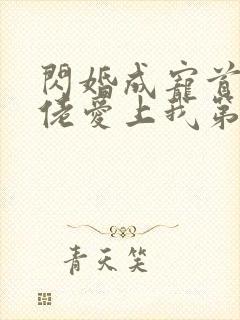 閃婚成寵首
佬愛上我第
青天笑